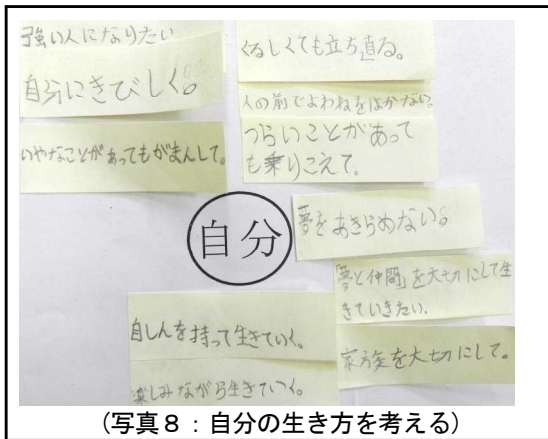 強い人になりたい
自分にきびしく。
いやなことがあってもがまんして。
くるしくても立ち直る。
人の前でよわねをはかない。
つらいことがあって
も乗りこえて。
自分
夢をあきらめない。
「夢と仲間」を大切にして生
きていきたい。
家族を大切にして。
自しんを持って生きていく。
楽しみながら生きていく。
(写真8:自分の生き方を考える)